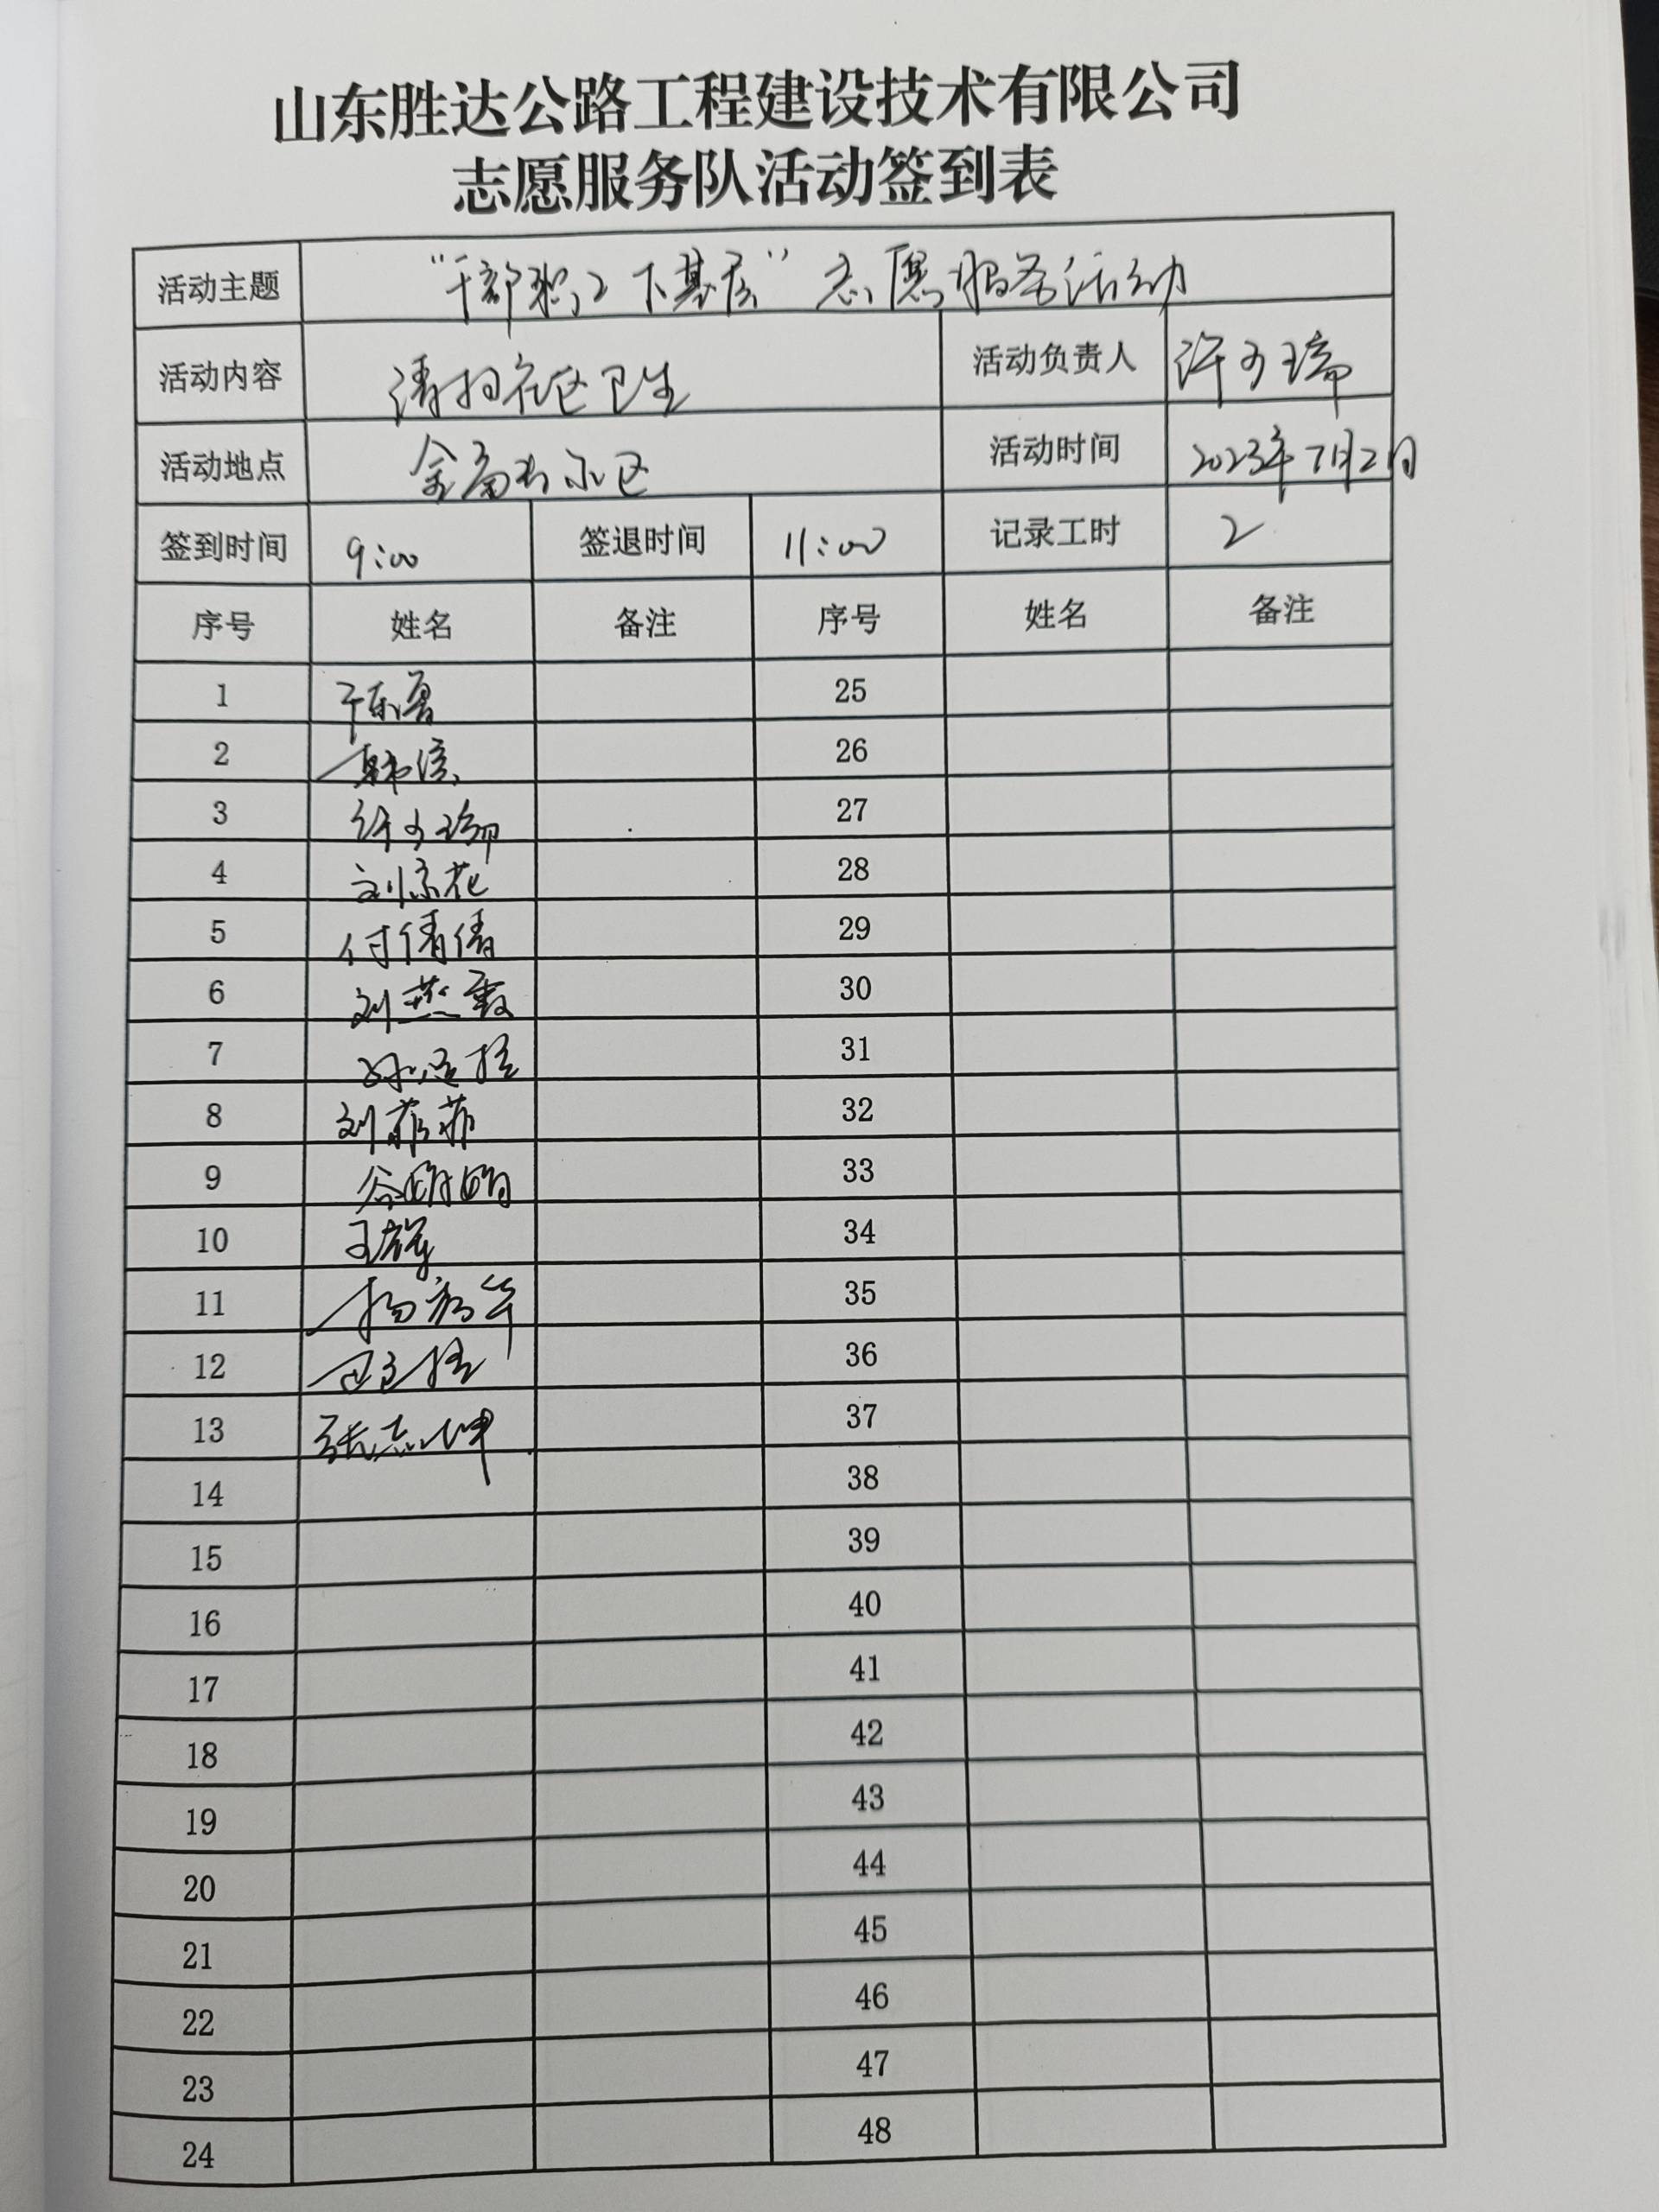 山东胜达公路工程建设技术有限公司
志愿服务队活动签到表
活动主题 “干部职工下基层”志愿服务活动
活动内容 清扫社区卫生 活动负责人 许
活动地点 小区 活动时间 2023年7月2日
签到时间 9:00 签退时间 11:00 记录工时 2
序号 姓名 备注 序号 姓名 备注
1 于东勇 25
2 26
3 许 27
4 刘京花 28
5 付倩倩 29
6 刘燕霞 30
7 31
8 刘菲菲 32
9 谷明明 33
10 王 34
11 杨 35
12 36
13 张志坤 37
14 38
15 39
16 40
17 41
18 42
19 43
20 44
21 45
22 46
23 47
24 48